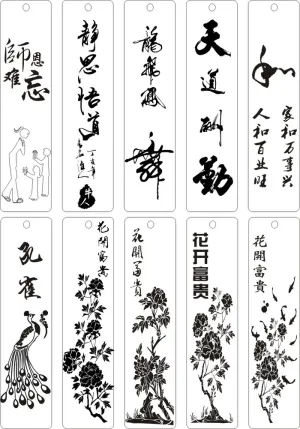 師恩
难忘
静思悟道
龍飛鳳
舞
天道酬勤
和
家和万事兴
人和百业旺
孔雀
花開富貴
花開富貴
花开富贵
花開富貴